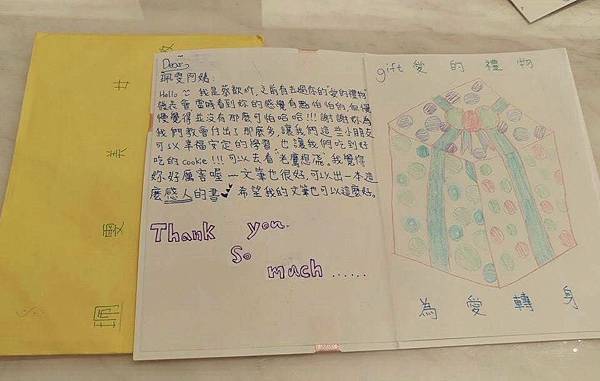 Dear:
珮雯阿姨:
Hello~ 我是蔡歆忻,之前有去過你的愛的禮物
後衣會,當時看到妳的感覺有點怕怕的,但慢
慢覺得並沒有那麼可怕哈哈!!!謝謝妳為
我們教會付出了那麼多,讓我們這些小朋友
可以幸福安定的學習,也讓我們吃到好
吃的cookie!!!可以去看老鷹想飛。我覺得
妳好厲害喔~文筆也很好,可以出一本這
麼感人的書 希望我的文筆也可以這麼好。
Thank you
So
much......
gift 愛的禮物
為愛轉身
珮雯美